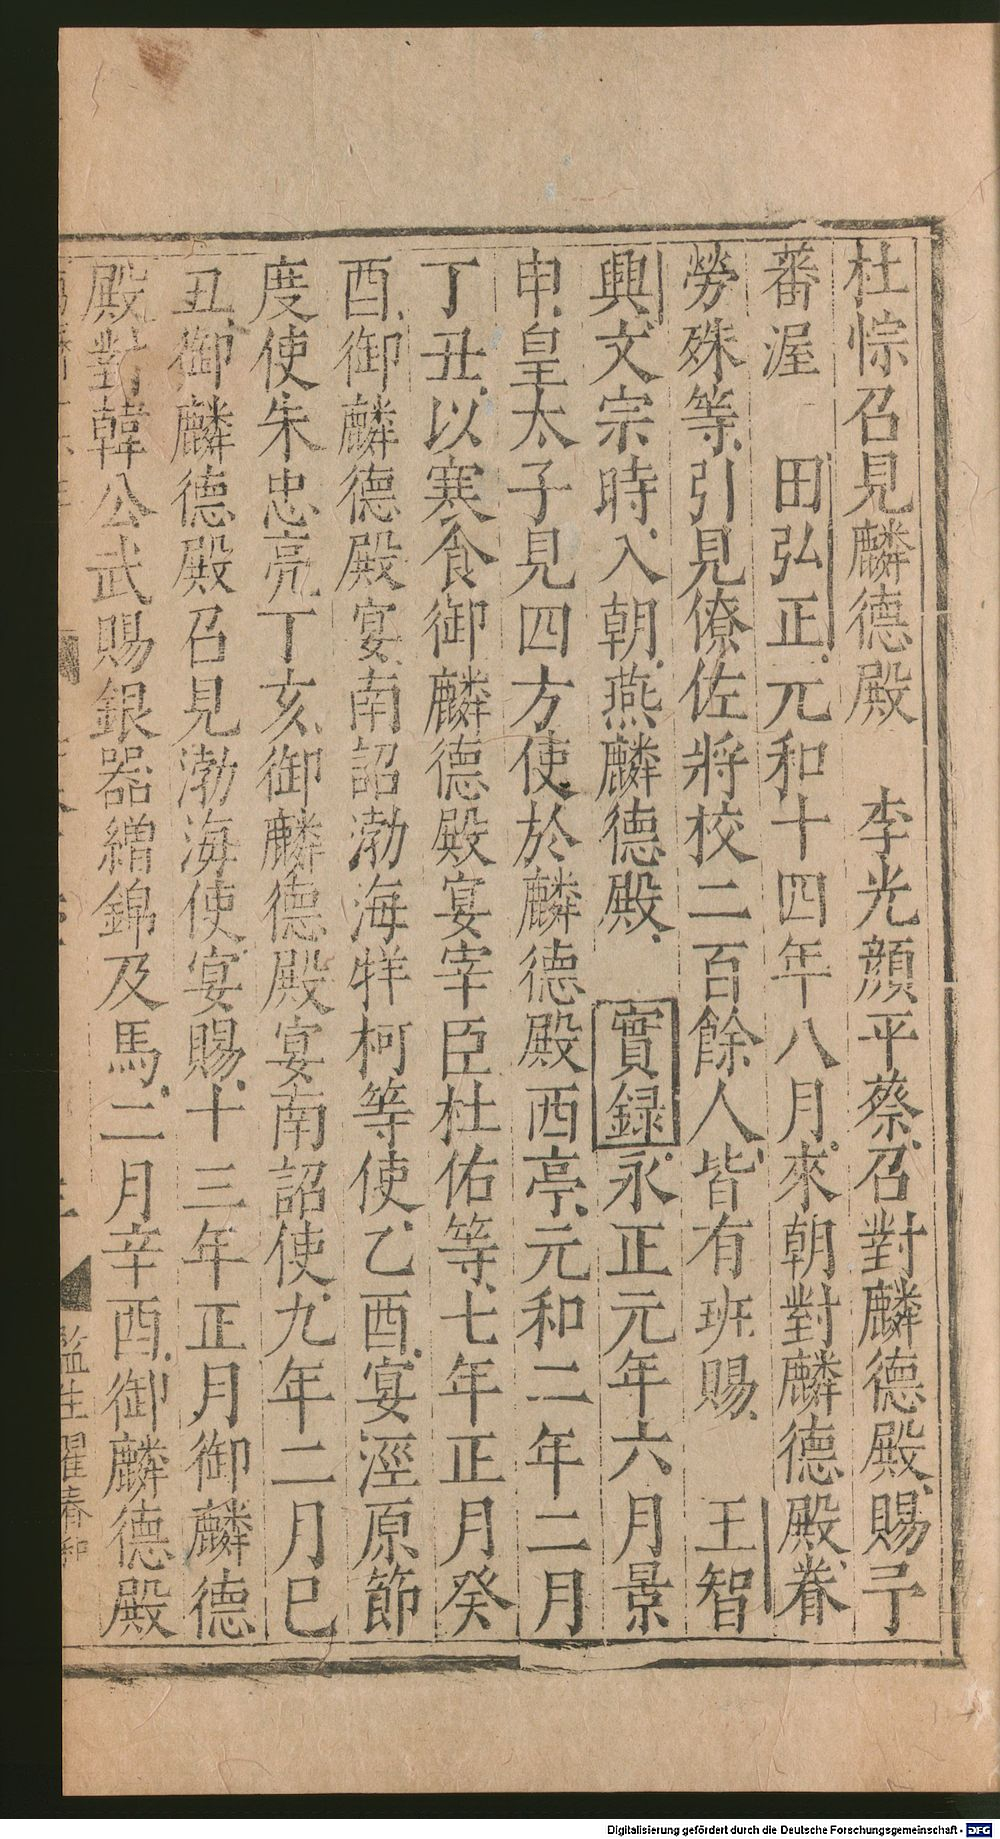 杜悰召見麟德殿　李光顔平蔡召對麟德殿賜予
蕃渥　田弘正元和十四年八月來朝對麟德殿眷
勞殊等引見僚佐將校二百餘人皆有班賜　王智
興文宗時入朝燕麟德殿　實録永正元年六月景
申皇太子見四方使於麟德殿西亭元和二年二月
丁丑以寒食御麟德殿宴宰臣杜佑等七年正月癸
酉御麟德殿宴南詔渤海牂柯等使乙酉宴涇原節
度使朱忠亮丁亥御麟德殿宴南詔使九年二月巳
丑御麟德殿召見渤海使宴賜十三年正月御麟德
殿對韓公武賜銀器繒錦及馬二月辛酉御麟德殿
監生
Digitalisierung gefördert durch die Deutsche Forschungsgemeinschaft - DFG